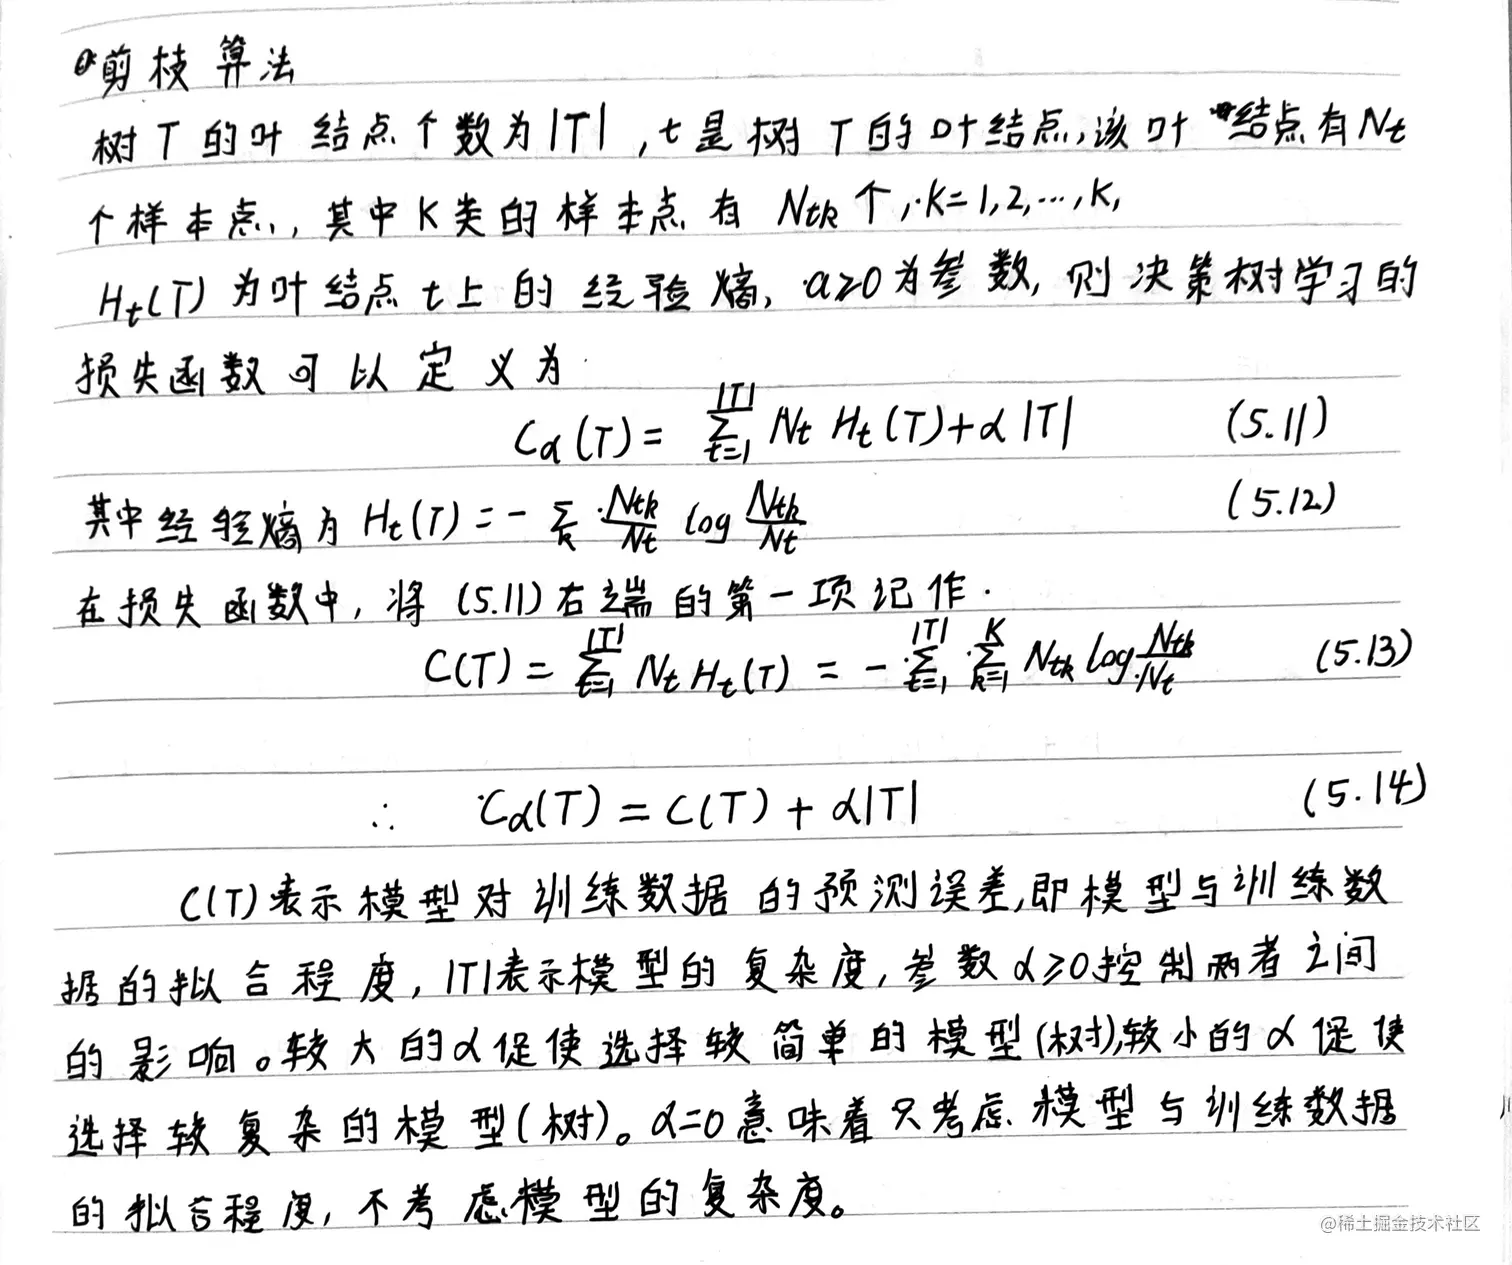 剪枝算法
树T的叶结点个数为|T|,t是树T的叶结点,该叶结点有Nt
个样本点,其中K类的样本点有Ntk个,k=1,2,…,K,
Ht(T)为叶结点t上的经验熵,α≥0为参数,则决策树学习的
损失函数可以定义为
Cα(T) = ∑_{t=1}^{|T|} Nt Ht(T)+α|T| (5.11)
其中经验熵为 Ht(T) = - ∑_k Ntk/Nt log Ntk/Nt (5.12)
在损失函数中,将(5.11)右端的第一项记作.
C(T) = ∑_{t=1}^{|T|} Nt Ht(T) = - ∑_{t=1}^{|T|} ∑_{k=1}^{K} Ntk log Ntk/Nt (5.13)
∴ Cα(T) = C(T) + α|T| (5.14)
C(T)表示模型对训练数据的预测误差,即模型与训练数
据的拟合程度,|T|表示模型的复杂度,参数α≥0控制两者之间
的影响。较大的α促使选择较简单的模型(树),较小的α促使
选择较复杂的模型(树)。α=0意味着只考虑模型与训练数据
的拟合程度,不考虑模型的复杂度。
@稀土掘金技术社区